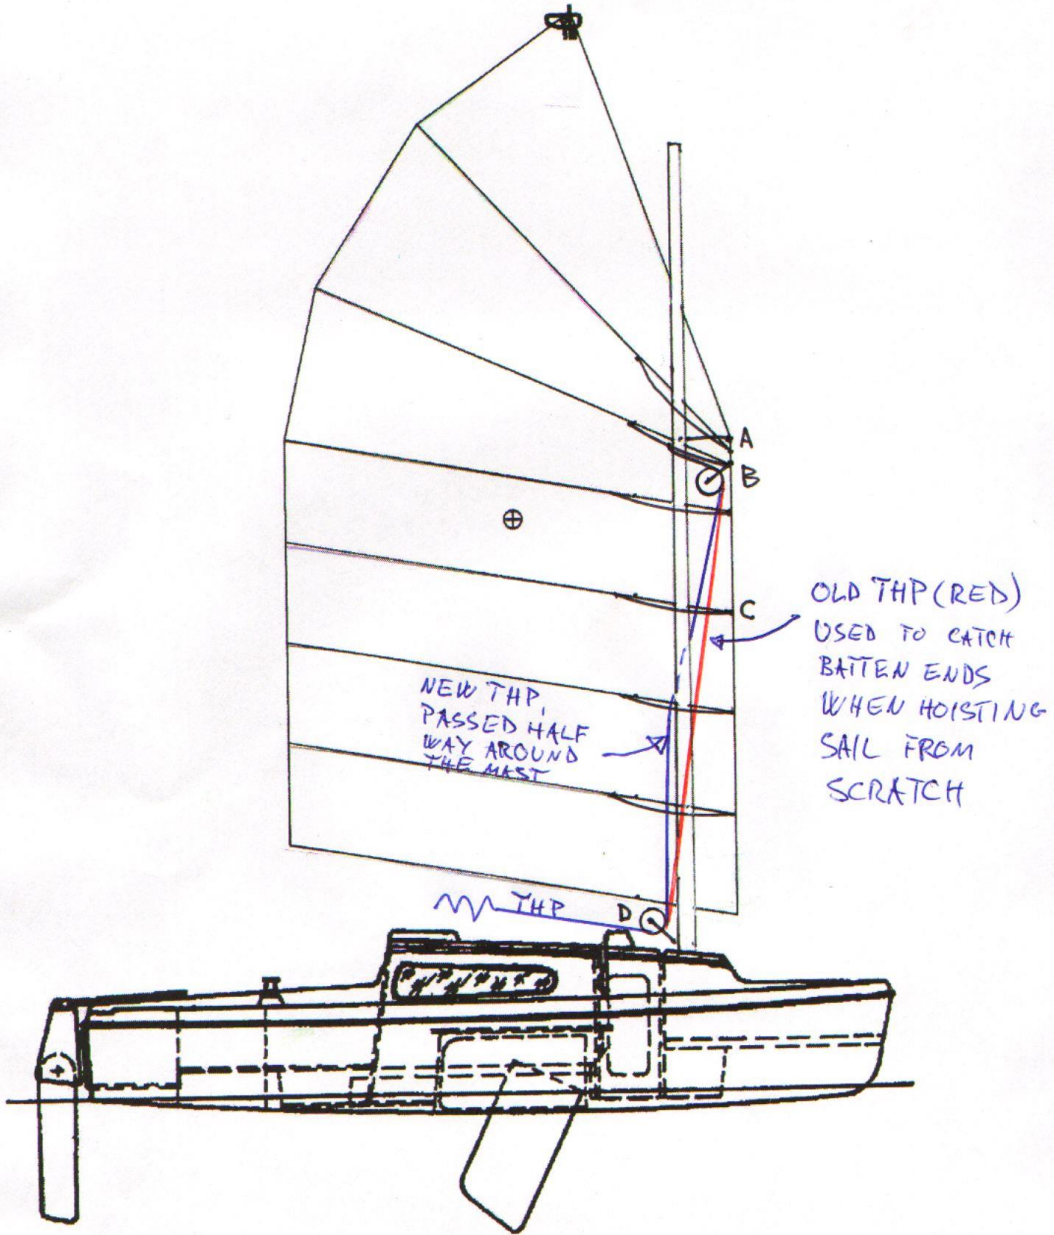 A
B
C
OLD THP (RED)
USED TO CATCH
BATTEN ENDS
WHEN HOISTING
SAIL FROM
SCRATCH
NEW THP,
PASSED HALF
WAY AROUND
THE MAST
THP
D